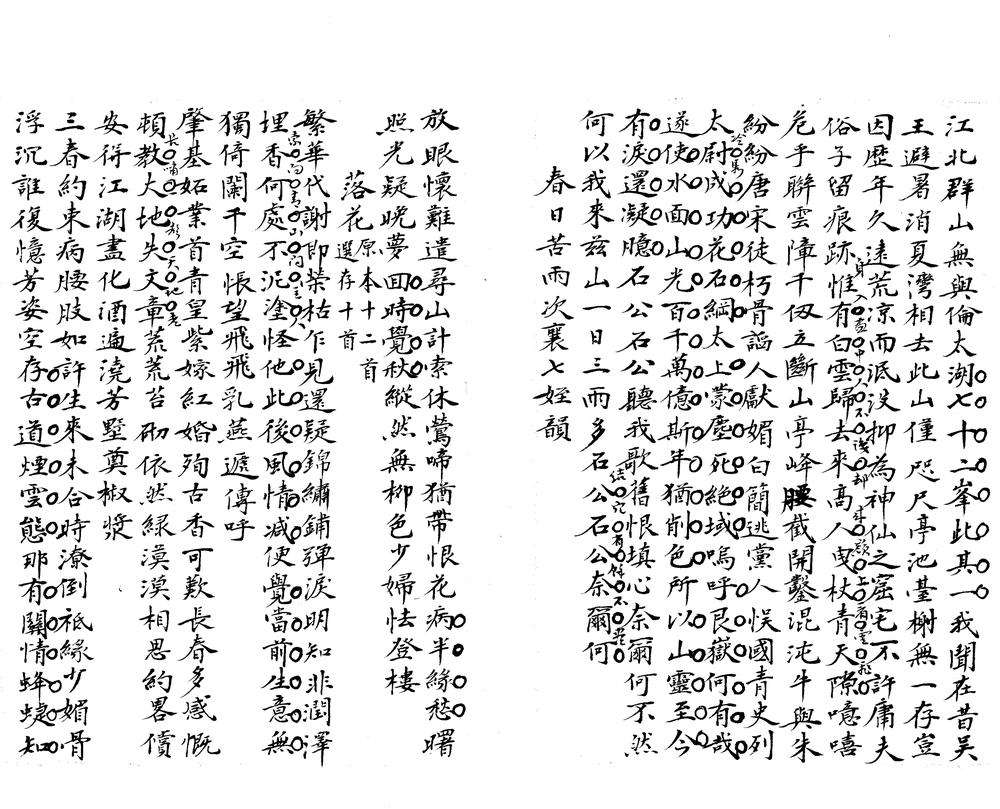 江北群山無與倫太湖七十二峯此其一我聞在昔吳
王避暑消夏灣相去此山僅咫尺亭池臺榭無一存豈
因歷年久遠荒涼而泯沒抑為神仙之窟宅不許庸夫
俗子留痕跡惟有白雲歸去來高人曳杖青天隙噫嘻
危乎聯雲障千仭立斷山亭峰腰截開鑿混沌牛與朱
紛紛唐宋徒朽骨謟人獻媚白簡逃黨人悮國青史列
太尉成功花石綱太上蒙塵死絕域嗚呼艮嶽何有哉
遂使水面山光百千萬億斯年猶削色所以山靈至今
有淚還凝臆石公石公聽我歌舊恨填心奈爾何不然
何以我來茲山一日三雨多石公石公奈爾何
春日苦雨次襄七姪韻
放眼懷難遣尋山計索休鶯啼猶帶恨花病半緣愁曙
照光疑晚夢回時覺秋縱然無柳色少婦怯登樓
落花原本十二首選存十首
繁華代謝即榮枯乍見還疑錦繡鋪彈淚明知非潤澤
埋香何處不泥塗怪他此後風情減便覺當前生意無
獨倚闌干空悵望飛飛乳燕遞傳呼
肇基妬業首青皇紫嫁紅婚殉古香可歎長春多感慨
頓教大地失文章荒荒苔砌依然綠漠漠相思約畧償
安得江湖盡化酒遍澆芳墅奠椒漿
三春約束病腰肢如許生來未合時潦倒祗緣少媚骨
浮沉誰復憶芳姿空存古道煙雲態那有關情蜂蜨知